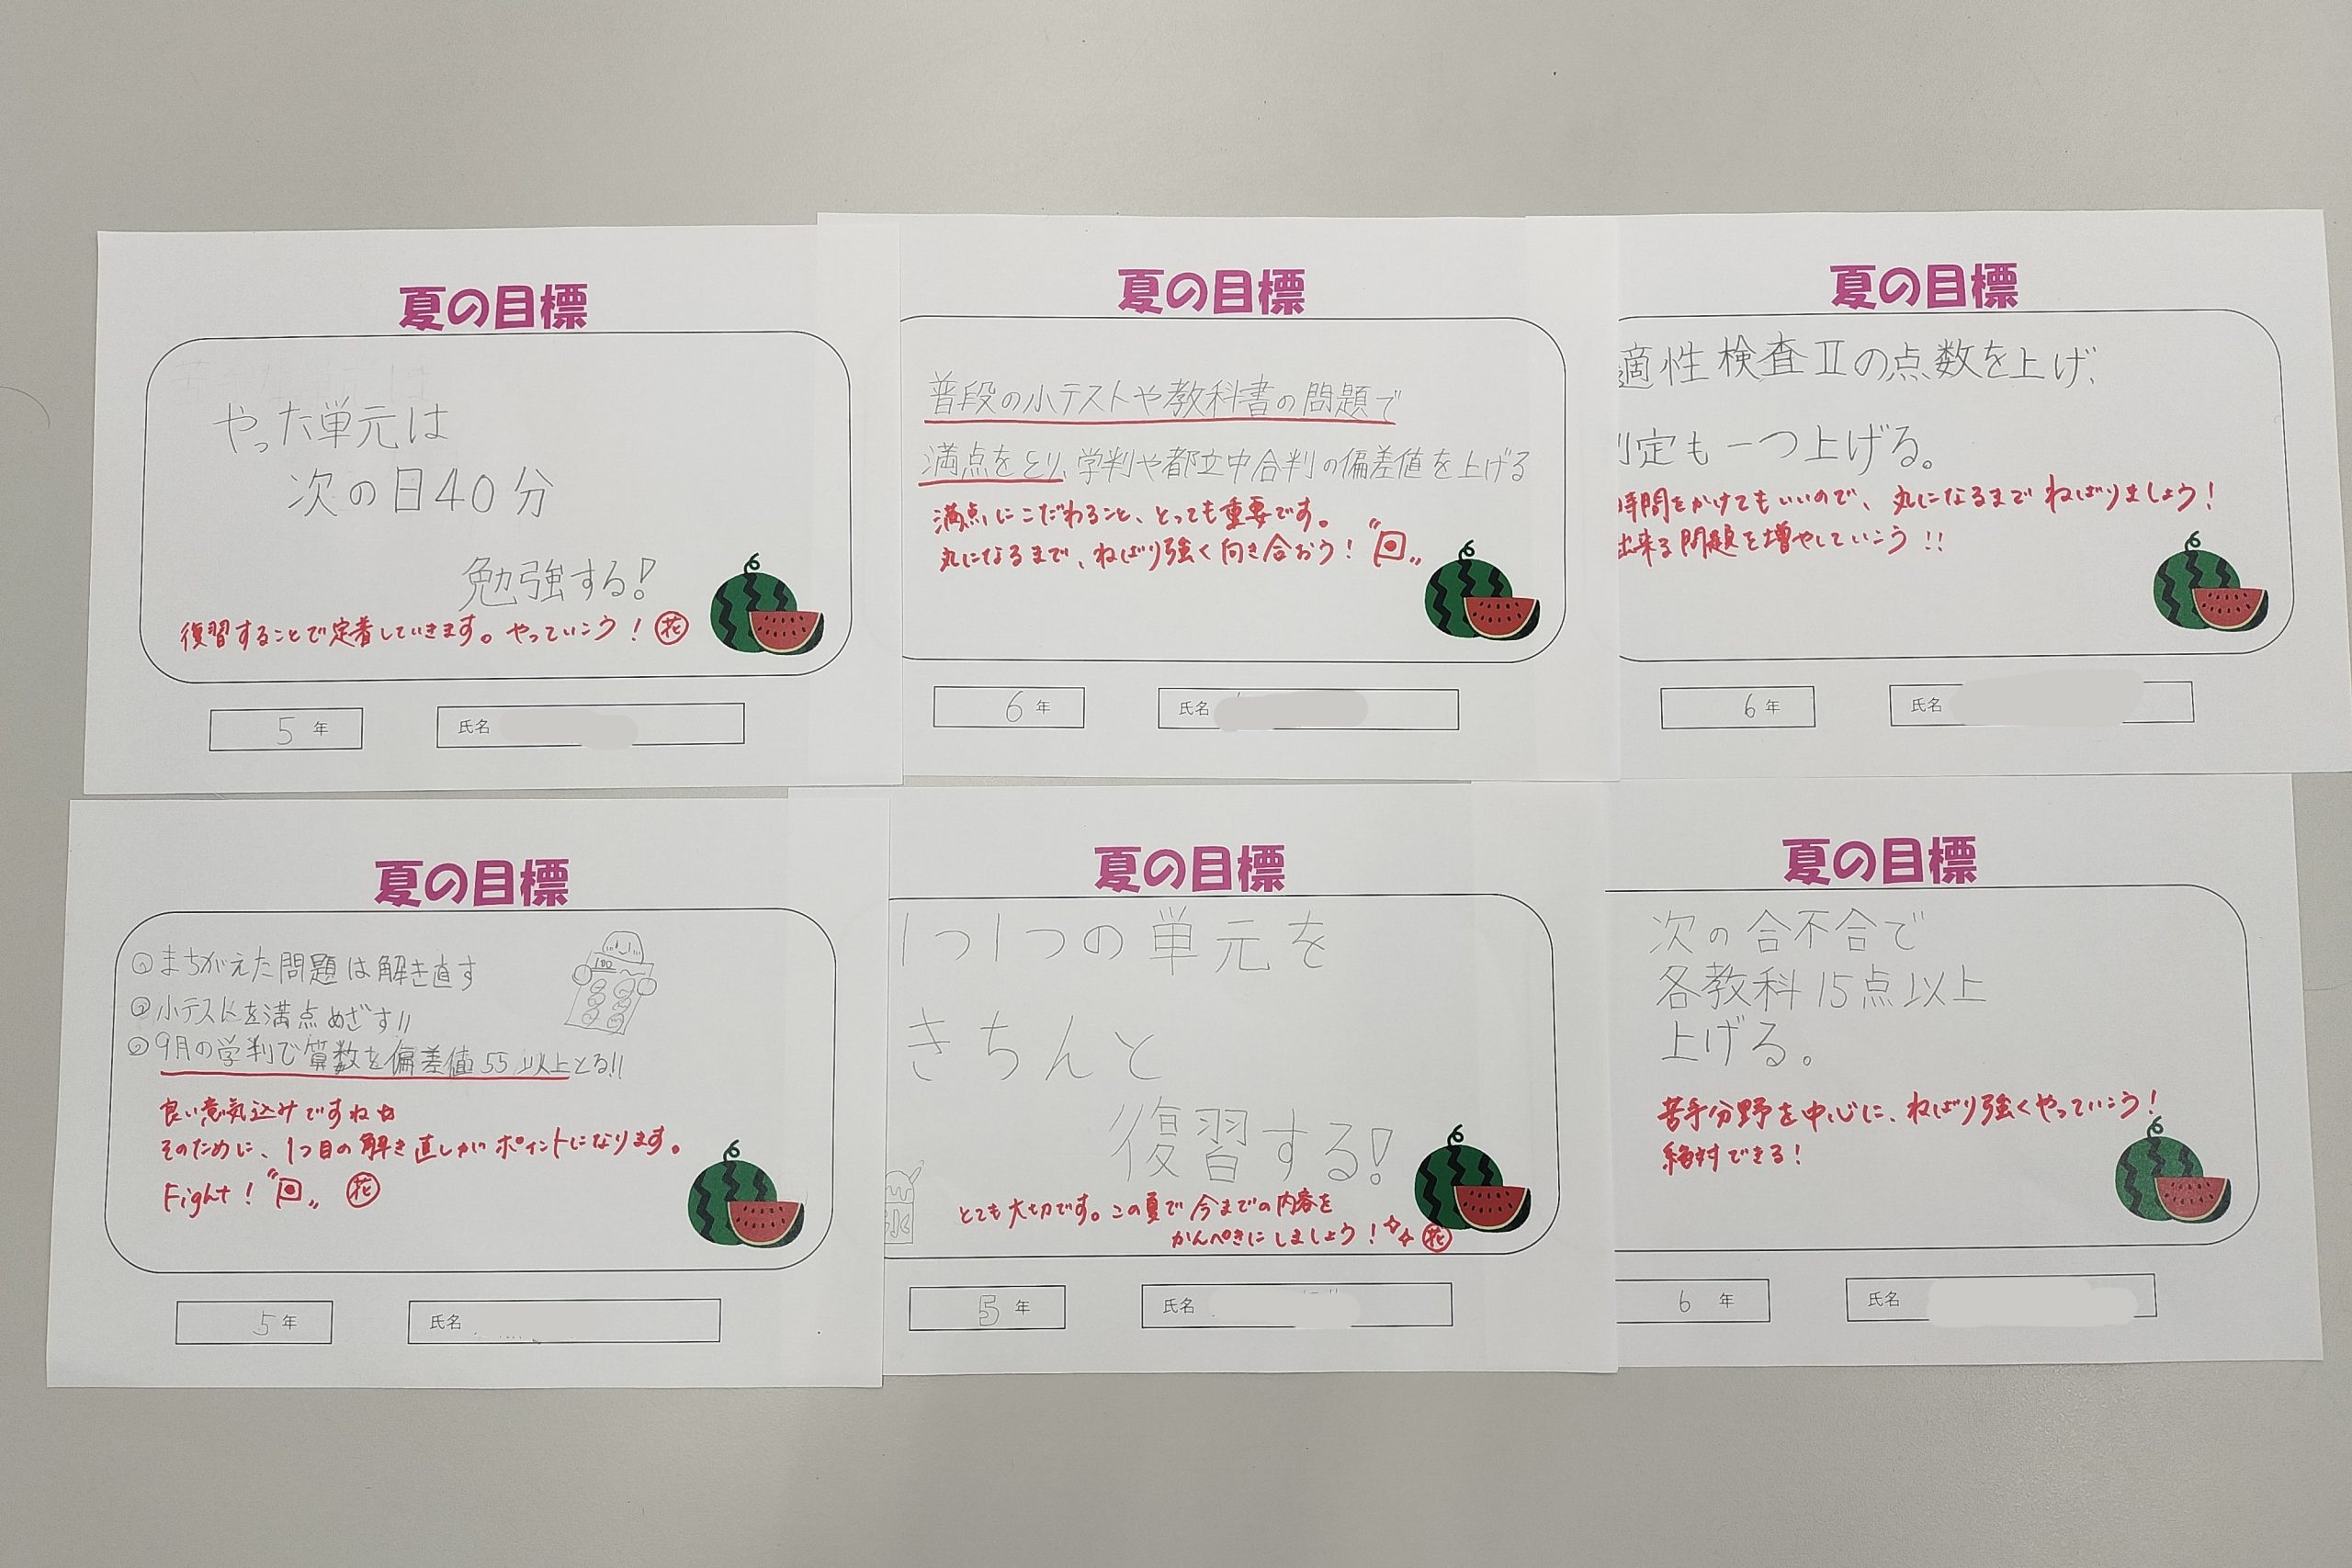 夏の目標
やった単元は
次の日40分
勉強する!
復習することで定着していきます。やっていこう! 花
5年
氏名
夏の目標
普段の小テストや教科書の問題で
満点をとり、学判や都立中合判の偏差値を上げる
満点にこだわること、とっても重要です。
丸になるまで、ねばり強く向き合おう!
6年
氏名
夏の目標
適性検査Ⅱの点数を上げ、
定も一つ上げる。
時間をかけてもいいので、丸になるまでねばりましょう!
出来る問題を増やしていこう!!
6年
氏名
夏の目標
①まちがえた問題は解き直す
②小テストを満点めざす!!
③9月の学判で算数を偏差値55以上とる!!
100
良い意気込みですね☆
そのために、1つ目の解き直しがポイントになります。
Fight! 花
5年
氏名
夏の目標
1つ1つの単元を
きちんと
復習する!
氷
とても大切です。この夏で今までの内容を
かんぺきにしましょう! 花
5年
氏名
夏の目標
次の合不合で
各教科15点以上
上げる。
苦手分野を中心に、ねばり強くやっていこう!
絶対できる!
6年
氏名